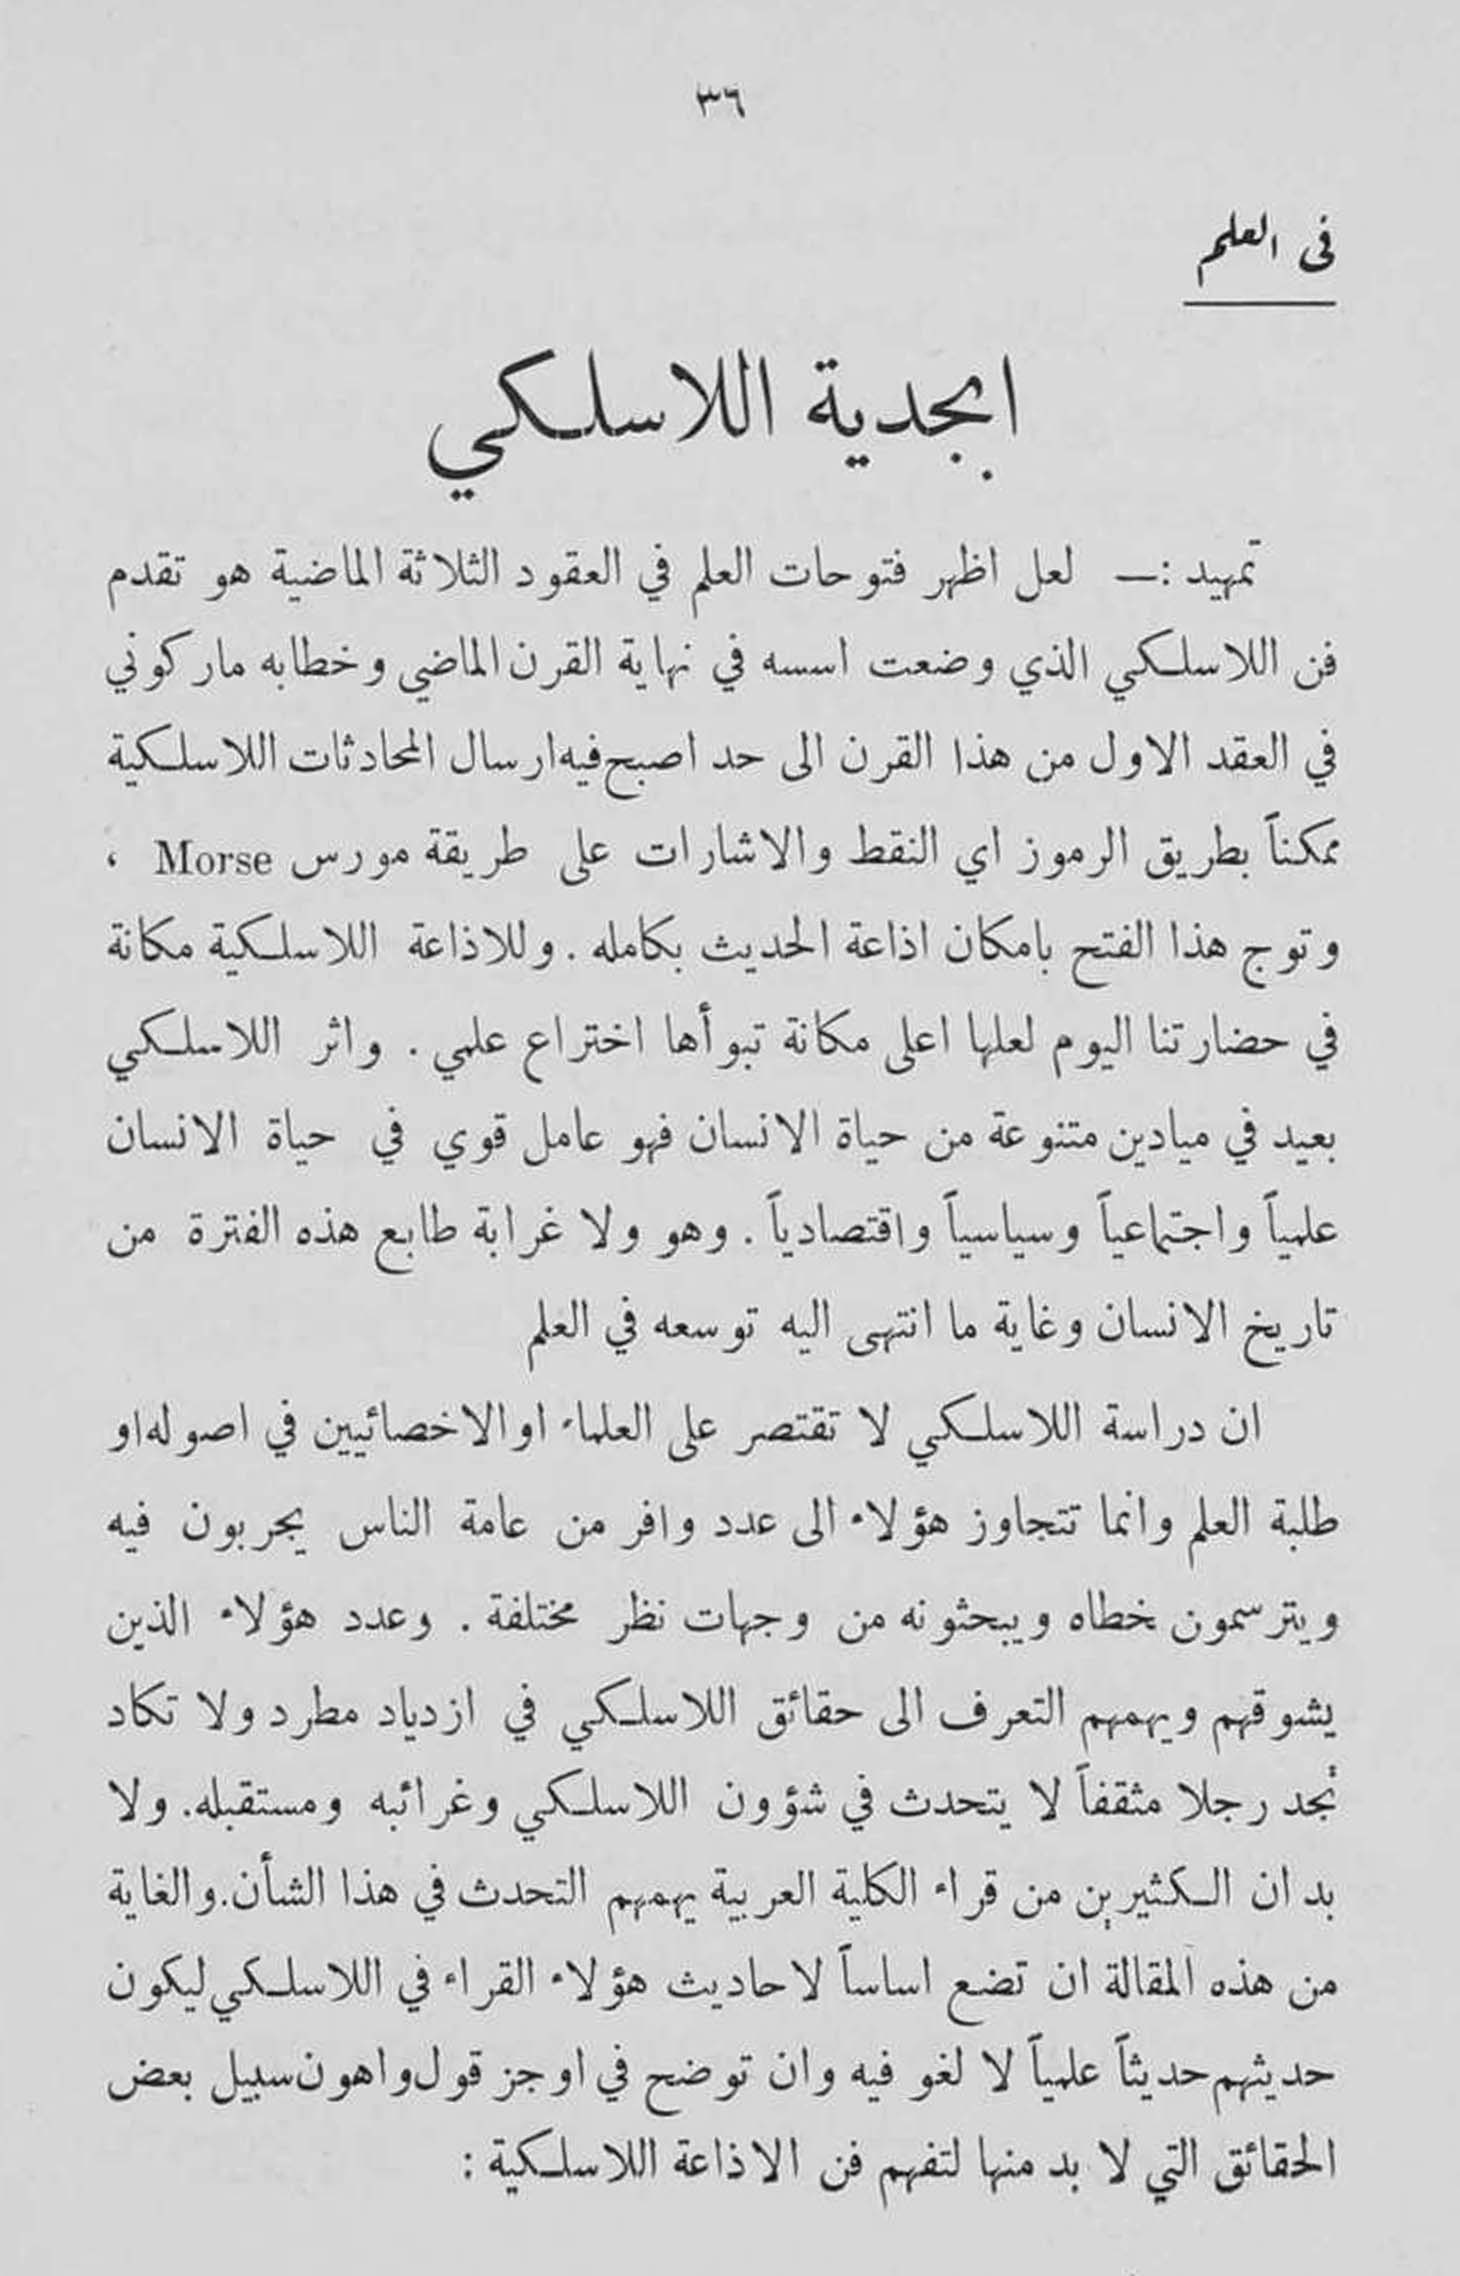 ٣٦
فى العلم
ابجدية اللاسلكي
تمهيد :— لعل اظهر فتوحات العلم في العقود الثلاثة الماضية هو تقدم
فن اللاسلكي الذي وضعت اسسه في نهاية القرن الماضي وخطابه ماركوني
في العقد الاول من هذا القرن الى حد اصبح فيه ارسال المحادثات اللاسلكية
ممكناً بطريق الرموز اي النقط والاشارات على طريقة مورس Morse ،
وتوج هذا الفتح بامكان اذاعة الحديث بكامله . وللاذاعة اللاسلكية مكانة
في حضارتنا اليوم لعلها اعلى مكانة تبوأها اختراع علمي . واثر اللاسلكي
بعيد في ميادين متنوعة من حياة الانسان فهو عامل قوي في حياة الانسان
علمياً واجتماعياً وسياسياً واقتصادياً . وهو ولا غرابة طابع هذه الفترة من
تاريخ الانسان وغاية ما انتهى اليه توسعه في العلم
ان دراسة اللاسلكي لا تقتصر على العلماء او الاخصائيين في اصوله او
طلبة العلم وانما تتجاوز هؤلاء الى عدد وافر من عامة الناس يجربون فيه
ويترسمون خطاه ويبحثونه من وجهات نظر مختلفة . وعدد هؤلاء الذين
يشوقهم ويهمهم التعرف الى حقائق اللاسلكي في ازدياد مطرد ولا تكاد
تجد رجلا مثقفاً لا يتحدث في شؤون اللاسلكي وغرائبه ومستقبله. ولا
بد ان الكثيرين من قراء الكلية العربية يهمهم التحدث في هذا الشأن. والغاية
من هذه المقالة ان تضع اساساً لاحاديث هؤلاء القراء في اللاسلكي ليكون
حديثهم حديثاً علمياً لا لغو فيه وان توضح في اوجز قول واهون سبيل بعض
الحقائق التي لا بد منها لتفهم فن الاذاعة اللاسلكية :